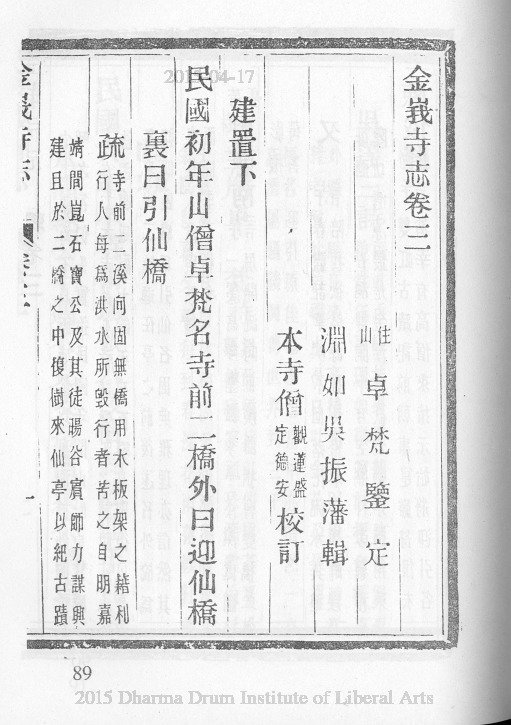 金峩寺志卷三
住山 卓梵鑒定
淵如吳振藩輯
本寺僧 觀蓮盛 定德安 校訂
建置下
民國初年山僧卓梵名寺前二橋外曰迎仙橋
裏曰引仙橋
疏寺前二溪向固無橋用木板架之結利
行人每爲洪水所毀行者苦之自明嘉
靖間崑石寶公及其徒暘谷賓師力謀興
建且於二橋之中復剏來仙亭以紀古蹟
金峩寺志
卷三
一
2015-04-17
89
2015 Dharma Drum Institute of Liberal Arts